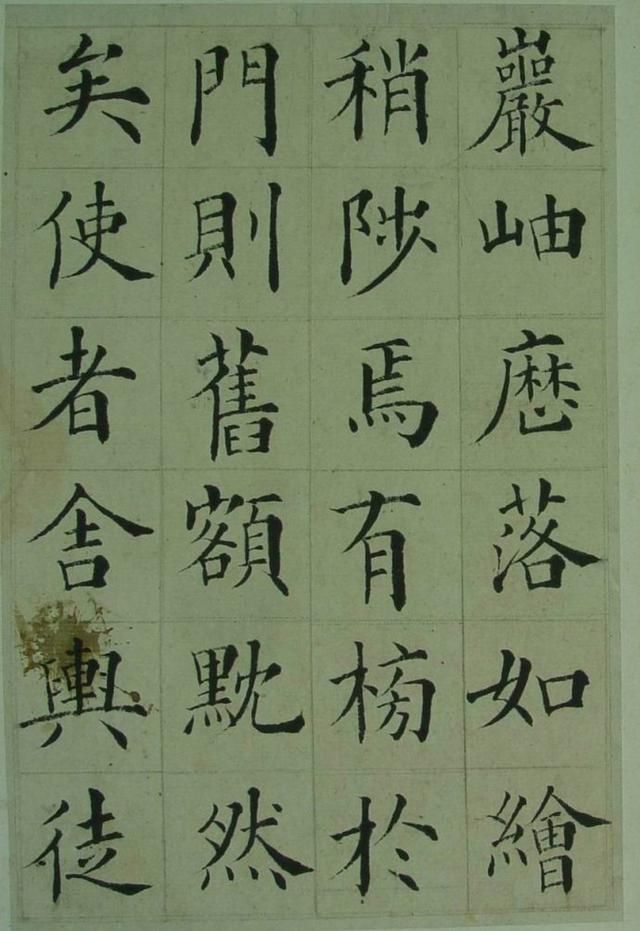 巖岫歷落如繪
稍陟焉有榜於
門則舊額黕然
矣使者舍輿徒